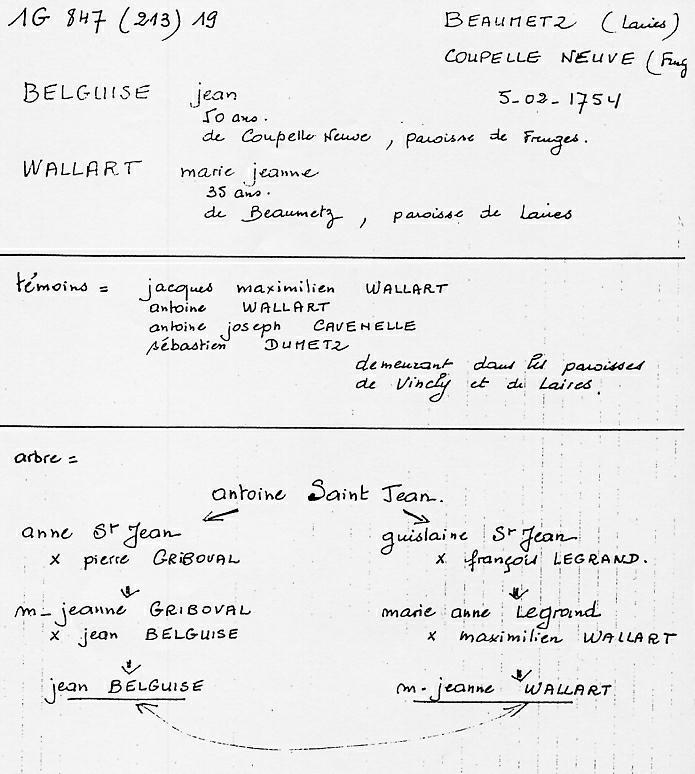 1G 847 (213) 19
BEAUMETZ (Laires)
COUPELLE NEUVE (Frug
BELGUISE jean 5-02-1754
50 ans.
de Coupelle Neuve, paroisse de Fruges.
WALLART marie jeanne
35 ans.
de Beaumetz, paroisse de Laires
témoins = jacques maximilien WALLART
antoine WALLART
antoine joseph CAVENELLE
sébastien DUMETZ
demeurant dans les paroisses
de Vincly et de Laires.
arbre =
antoine Saint Jean.
anne St Jean guislaine St Jean
x pierre GRIBOVAL x françois LEGRAND.
m-jeanne GRIBOVAL marie anne Legrand
x jean BELGUISE x maximilien WALLART
jean BELGUISE m-jeanne WALLART